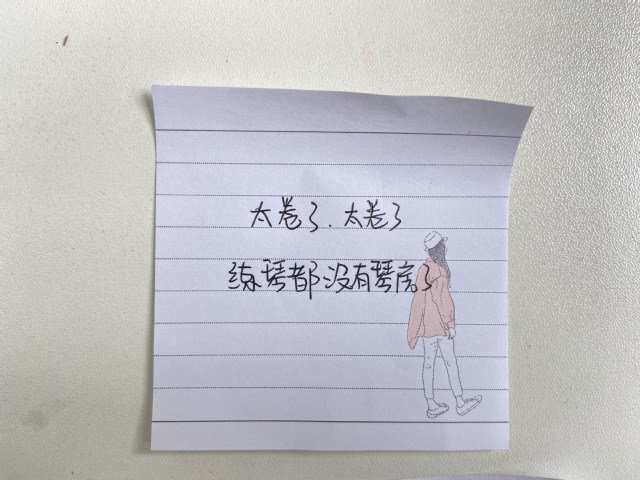 太卷了.太卷了
练琴都没有琴房了